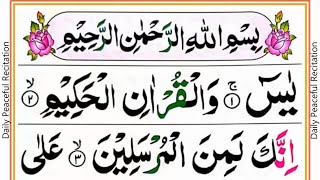 بِسْمِ اللهِ الرَّحْمٰنِ الرَّحِيْمِ
يٰسٓ ۚ﴿۱﴾ وَالْقُرْاٰنِ الْحَكِيْمِ ۙ﴿۲﴾
اِنَّكَ لَمِنَ الْمُرْسَلِيْنَ ۙ﴿۳﴾ عَلٰى
Daily Peaceful Recitation
Daily Peaceful Recitation